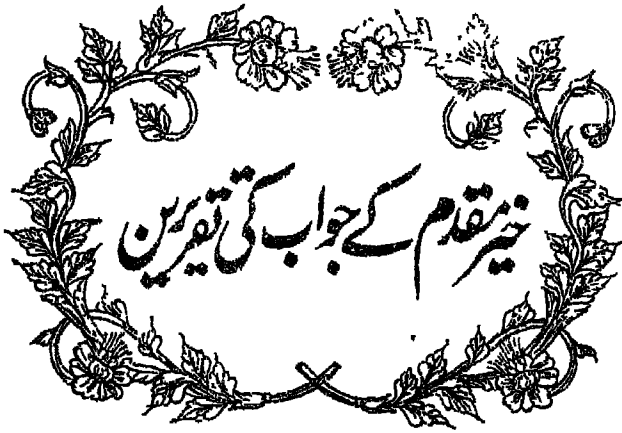 خیر مقدم کے جواب کی تقریرین